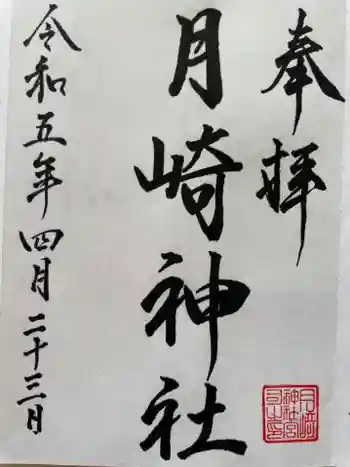 奉拝
月崎神社
令和五年四月二十三日
月崎神社宮司之印